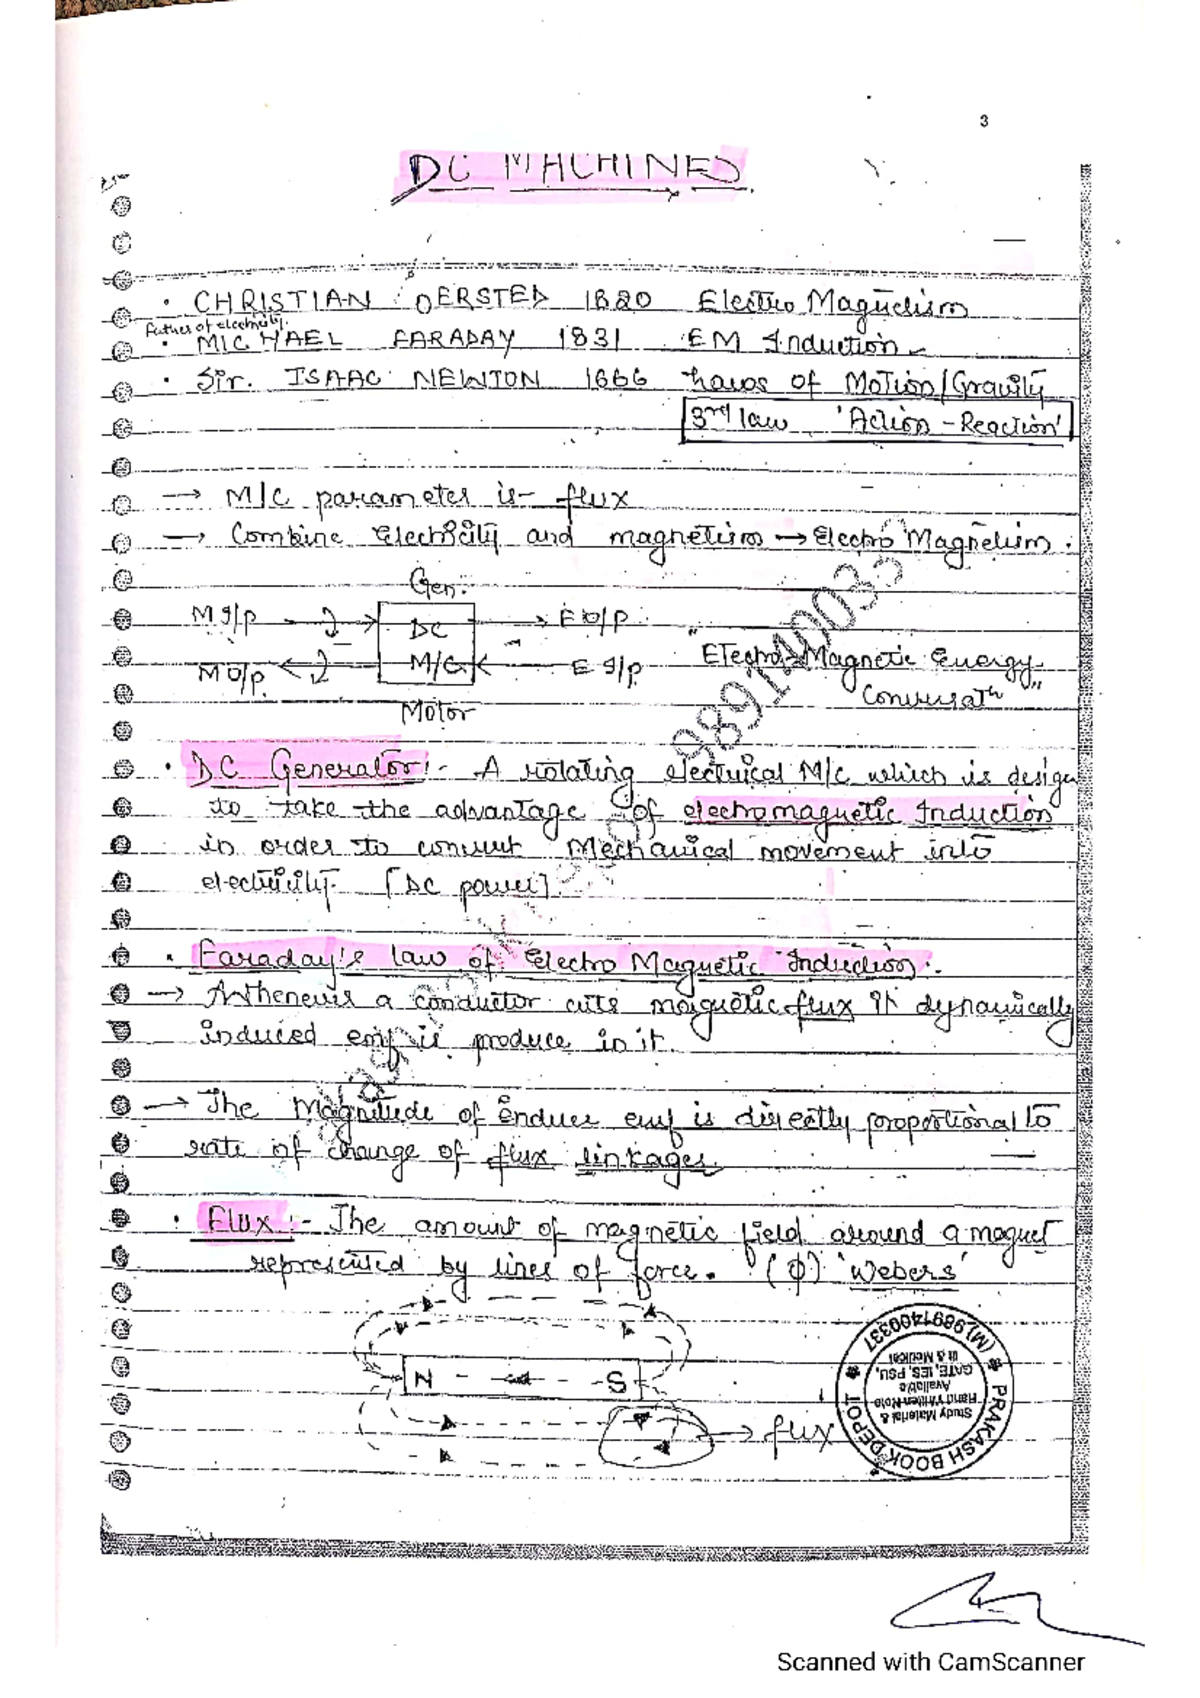 3
DC MACHINES
• CHRISTIAN OERSTED 1820 Electro Magnetism
Father of electricity.
• MICHAEL FARADAY 1831 EM Induction
• Sir. ISAAC NEWTON 1666 Laws of Motion/Gravity
3rd law 'Action - Reaction'
→ M/C parameter is - flux
→ Combine Electricity and magnetism → Electro Magnetism.
Gen.
M I/p DC E O/p
M O/p. M/C E I/p
"Electro-Magnetic Energy
Conversatn"
Motor
• DC Generator:- A rotating electrical M/c which is design
to take the advantage of electromagnetic Induction
in order to convert Mechanical movement into
electricity. [DC power].
• Faraday's law of Electro Magnetic Induction.
→ Whenever a conductor cuts magnetic flux it dynamically
induced emf is produce in it.
→ The Magnitude of Enduce emf is directly proportional to
rate of change of flux linkages.
• Flux :- The amount of magnetic field around a magnet
represented by lines of force. (ϕ) 'Webers'
N S
→ flux
PRAKASH BOOK DEPOT
(M) 9891400337
Study Material &
Hand Written Note
Available
GATE, IES, PSU,
IIt & Medical
Scanned with CamScanner